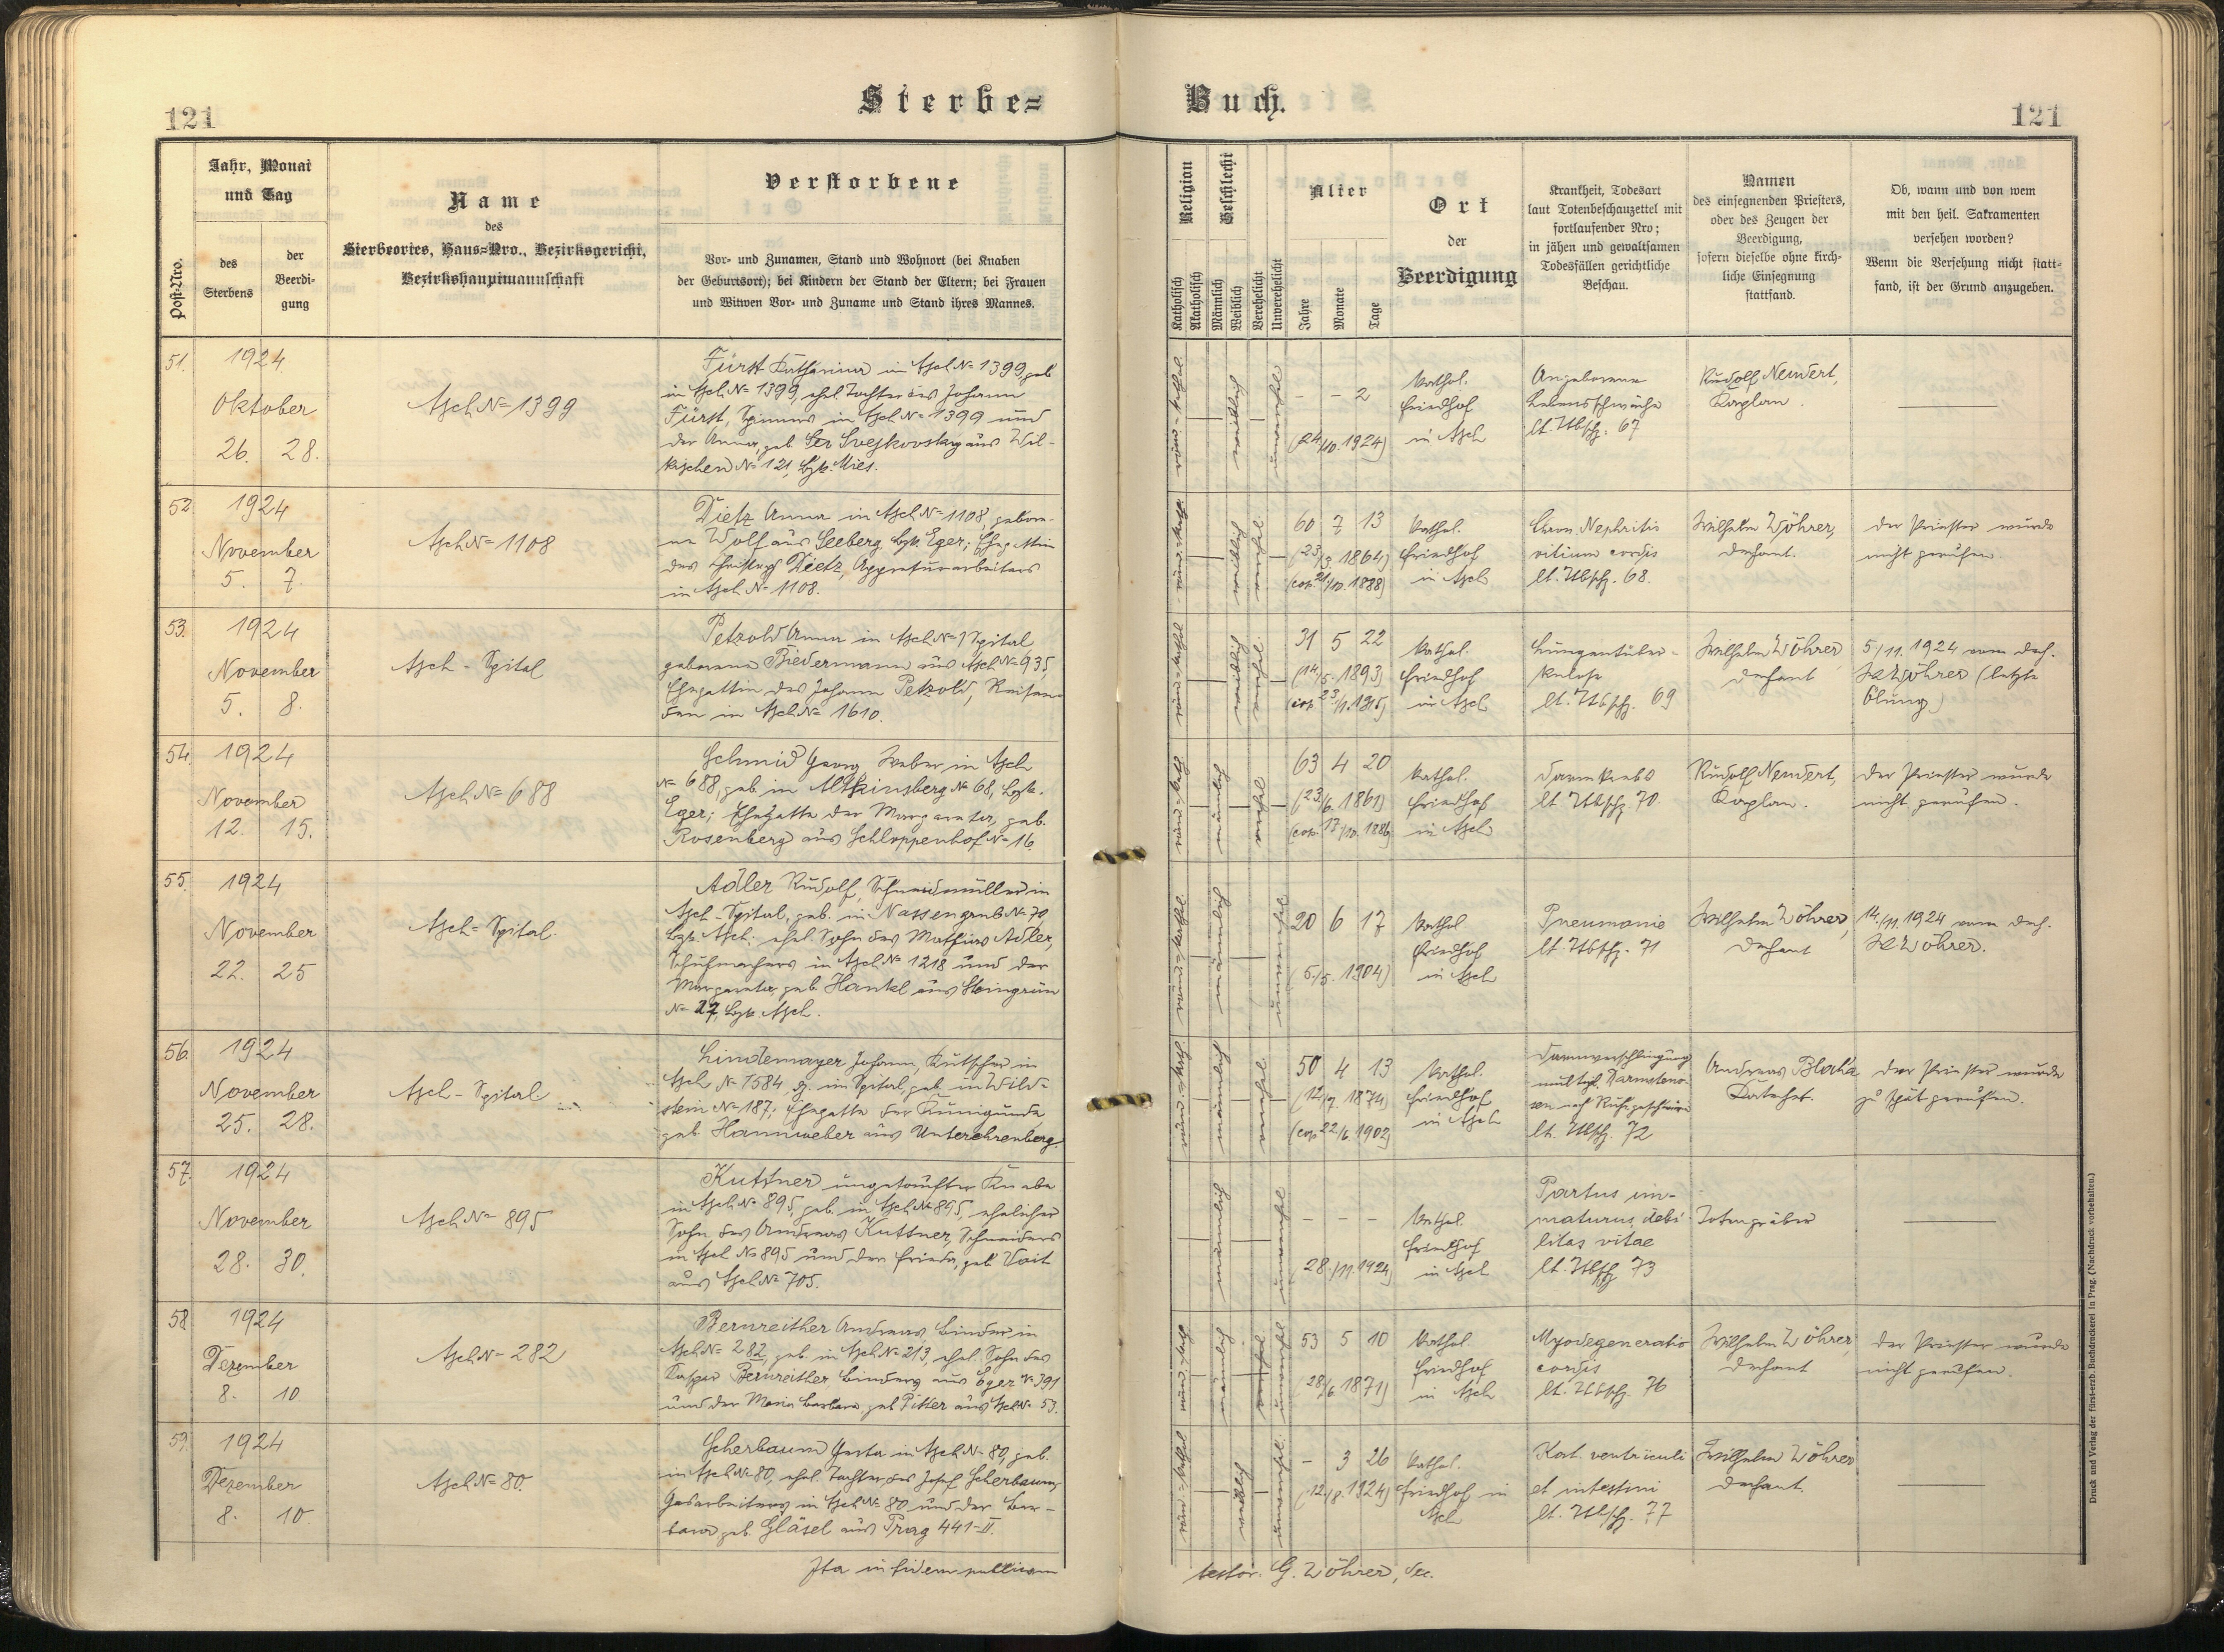 121
Sterbe=
Buch.
121
Post-Nro.
Jahr, Monat
und Tag
des
Sterbens
der
Beerdi-
gung
Name
des
Sterbeortes, Haus=Nro., Bezirksgericht,
Bezirkshauptmannschaft
Verstorbene
Vor- und Zunamen, Stand und Wohnort (bei Knaben
der Geburtsort); bei Kindern der Stand der Eltern; bei Frauen
und Witwen Vor- und Zuname und Stand ihres Mannes.
Religion
Katholisch
Akatholisch
Geschlecht
Männlich
Weiblich
Verehelicht
Unverehelicht
Alter
Jahre
Monate
Tage
Ort
der
Beerdigung
Krankheit, Todesart
laut Totenbeschauzettel mit
fortlaufender Nro;
in jähen und gewaltsamen
Todesfällen gerichtliche
Beschau.
Namen
des einsegnenden Priesters,
oder des Zeugen der
Beerdigung,
sofern dieselbe ohne kirch-
liche Einsegnung
stattfand.
Ob, wann und von wem
mit den heil. Sakramenten
versehen worden?
Wenn die Versehung nicht statt-
fand, ist der Grund anzugeben.
51.
1924.
Oktober
26. 28.
Asch No 1399
Fürst Katharina in Asch No 1399, geb.
in Asch No 1399, ehel. Tochter des Johann
Fürst, Spinners in Asch No 1399 und
der Anna, geb. Svejkovsky aus Wil-
kischen No 121, Bzk. Mies.
röm.-kathol.
weiblich
unverehel.
- - 2
(24/10. 1924)
Kathol.
Friedhof
in Asch
Angeborene
Lebensschwäche
lt. Tbschz. 67
Rudolf Neudert,
Kaplan.
52.
1924
November
5. 7.
Asch No 1108
Dietz Anna in Asch No 1108, gebore-
ne Wolf aus Seeberg, Bzk. Eger; Ehegattin
des Dietz, Appreturarbeiters
in Asch No 1108.
weiblich
verehel.
60 7 13
(23/3. 1864)
(cop. 21/10. 1888)
Kathol.
Friedhof
in Asch
Chron. Nephritis
vitium cordis
lt. Tbschz. 68.
Wilhelm Wöhrer,
Dechant.
Der Priester wurde
nicht gerufen.
53.
1924
November
5. 8.
Asch - Spital
Petzold Anna in Asch No Spital
geborene Biedermann aus Asch No 935,
Ehegattin des Johann Petzold, Reisen-
den in Asch No 1610.
weiblich
verehel.
31 5 22
(14/5. 1893)
Kathol.
Friedhof
in Asch
Lungentuber-
kulose
lt. Tbschz. 69
Wilhelm Wöhrer
Dechant
5/11. 1924 vom Dech.
Wöhrer (letzte
Ölung)
54.
1924
November
12. 15.
Asch No 688
Schmid Georg Weber in Asch
No 688, geb. in Altkinsberg No 68, Bzk.
Eger; Ehegatte der Margareta, geb.
Rosenberg aus Schloppenhof No 16.
männlich
verehel.
63 4 20
(23/6. 1861)
(cop. 17/10. 1886)
Kathol.
Friedhof
in Asch
Darmkrebs
lt. Tbschz. 70
Rudolf Neudert,
Kaplan.
Der Priester wurde
nicht gerufen.
55.
1924
November
22. 25
Asch = Spital.
Adler Rudolf, Schneidmüller in
Asch - Spital, geb. in Nassengrub No 70,
Bzk. Asch; ehel. Sohn des Mathias Adler,
Schuhmachers in Asch No 1218 und der
Margareta, geb. Hankl aus Steingrün
No 27, Bzk. Asch.
röm.-kathol.
männlich
unverehel.
20 6 17
(5./5. 1904)
Kathol
Friedhof
in Asch
Pneumonie
lt. Tbschz. 71
Wilhelm Wöhrer,
Dechant
14/11. 1924 vom Dech.
Wöhrer.
56.
1924
November
25. 28.
Asch - Spital.
Lindemayer Johann, Kutscher in
Asch No 1584 im Spital, geb. in Wild-
stein No 187; Ehegatte der Kunigunde
geb. Hannweber aus Unterehrenberg.
männlich
verehel.
50 4 13
(12/7. 1874)
(cop. 22/6. 1902)
Kathol.
Friedhof
in Asch
Darmverschlingung
lt. Tbschz. 72
Andreas Blaha
Katechet.
Der Priester wurde
zu spät gerufen.
57.
1924
November
28. 30.
Asch No 895
Kuttner ungetaufter Knabe
in Asch No 895, geb. in Asch No 895, ehelicher
Sohn des Andreas Kuttner, Schneiders
in Asch No 895 und der Frieda, geb. Voit
aus Asch No 705.
männlich
unverehel
- - -
28./11. 1924)
Kathol.
Friedhof
in Asch
Partus im-
maturus, debi-
litas vitae
lt. Tbschz. 73
Totengräber
58
1924
Dezember
8. 10
Asch No 282
Bernreither Andreas Binder in
Asch No 282, geb. in Asch No 213, ehel. Sohn des
Kaspar Bernreither Binders aus Eger No 391
und der Maria Barbara, geb. Pitter aus Asch No 53.
männlich
53 5 10
(28/6 1871)
Kathol
Friedhof
in Asch
Myodegeneratio
cordis
lt. Tbschz. 76
Wilhelm Wöhrer,
Dechant
Der Priester wurde
nicht gerufen.
59.
1924
Dezember
8. 10.
Asch No 80.
Scherbaum Gerta in Asch No 80, geb.
in Asch No 80, ehel. Tochter des Josef Scherbaum,
Gasarbeiters in Asch No 80 und der Bar-
bara geb. Gläsel aus Prag 441-II.
weiblich
unverehel.
- 3 26
(12/8. 1924)
Kathol.
Friedhof in
Asch
Kat. ventriculi
et intestini
lt. Tbschz. 77
Wilhelm Wöhrer
Dechant.
Ita in fidem publicam
testor. G. Wöhrer, Dec.
Druck und Verlag der fürst-erzb. Buchdruckerei in Prag. (Nachdruck vorbehalten.)